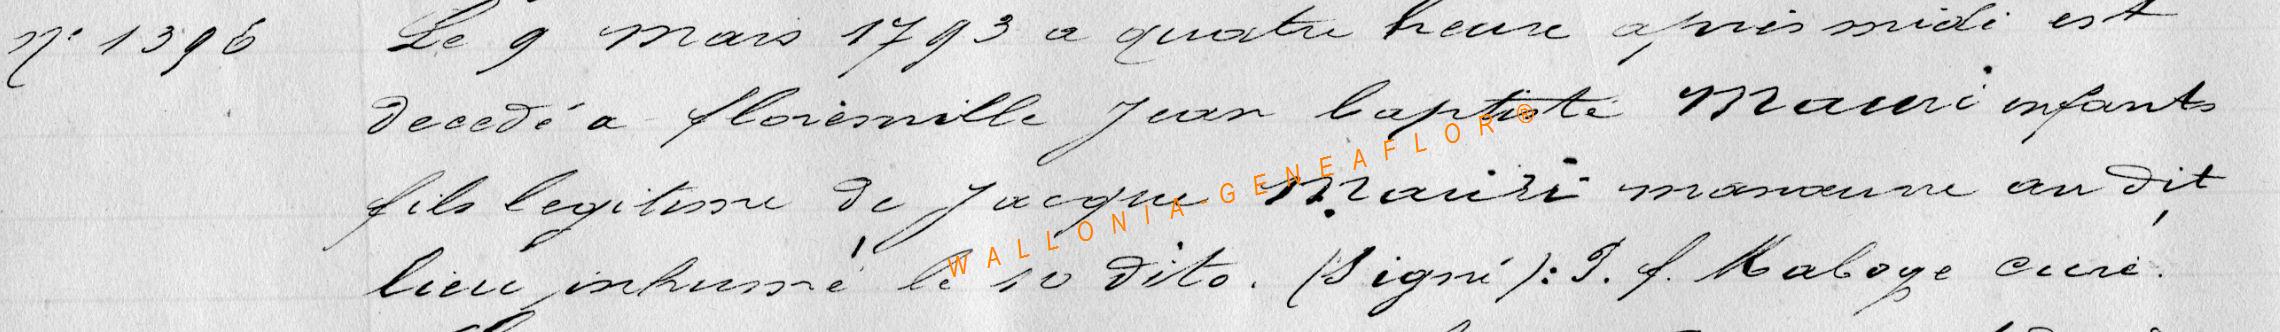 N° 1396 Le 9 Mars 1793 a quatre heure apris midi est
decedé a florenville Jean baptiste Mauri enfants
fils legitime de Jacque Mauiri manœuvre au dit
lieu, inhumé le 10 dito. (Signé): P. f. Maboge curé.
WALLONIA-GENEAFLOR®